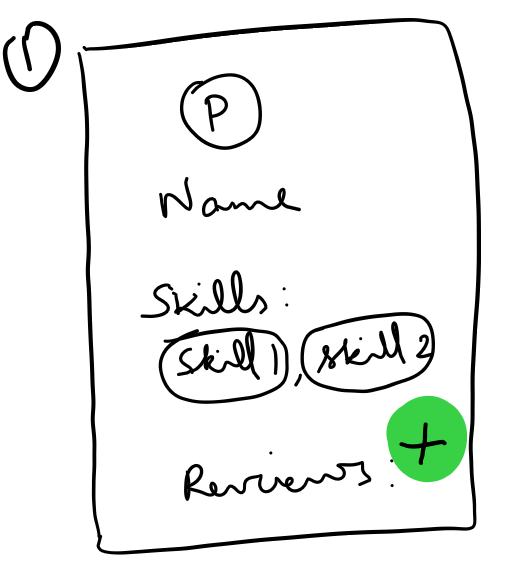 1
P
Name
Skills:
Skill 1, skill 2
+
Reviews: